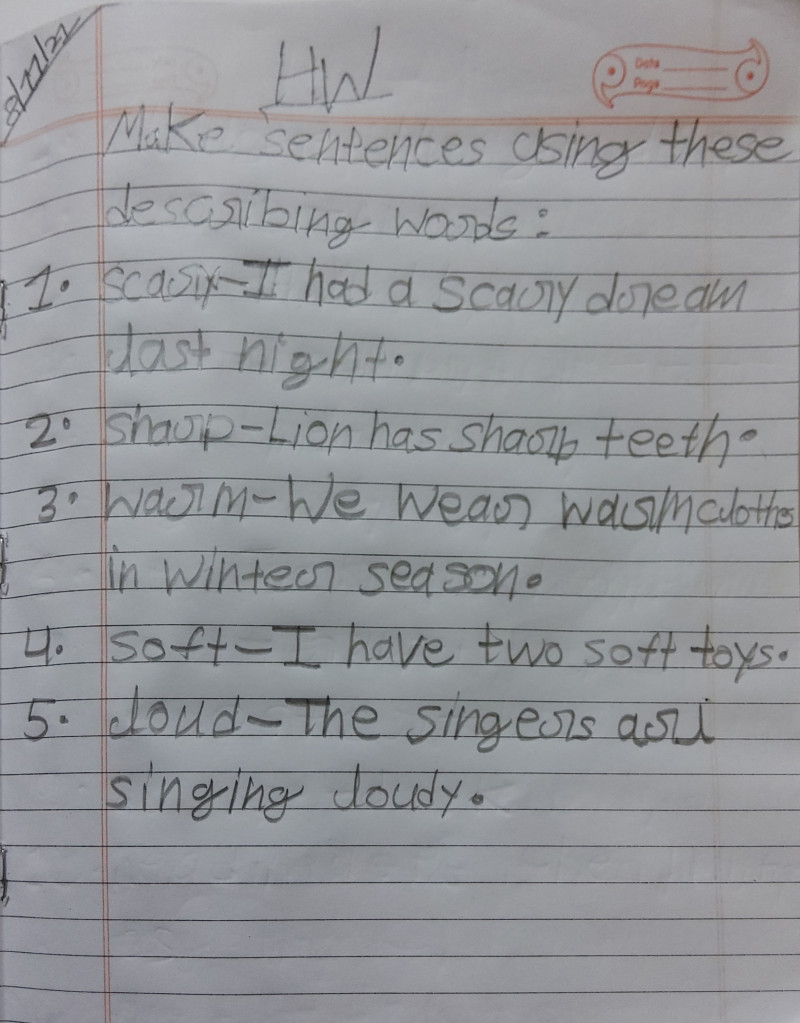 HW
Date
Page
Make sentences using these
describing words:
1. scary-I had a scary dream
last night.
2. sharp-Lion has sharp teeth.
3. warm-We wear warm clothes
in winter season.
4. soft-I have two soft toys.
5. loud-The singers are
singing loudy.